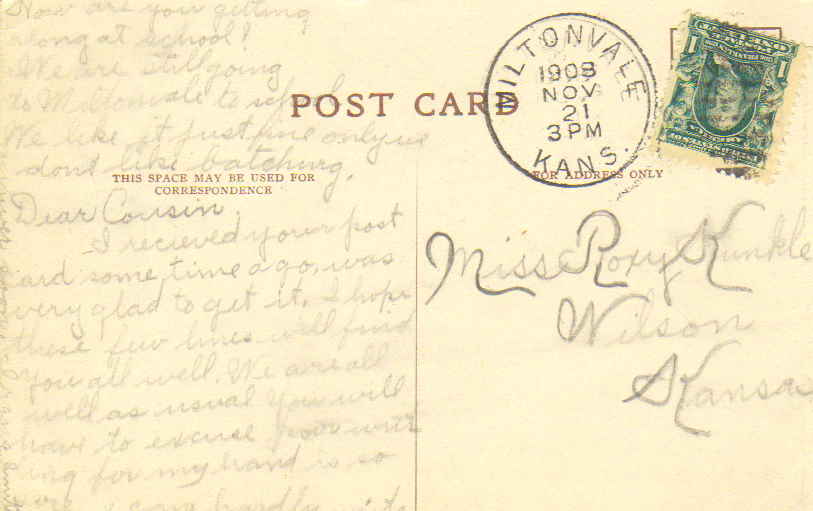 How are you getting
along at school?
We are still going
to Miltonvale to school
We like it just fine only we
dont like batching.
POST CARD
THIS SPACE MAY BE USED FOR
CORRESPONDENCE
FOR ADDRESS ONLY
MILTONVALE
1908
NOV
21
3 PM
KANS.
1
1
Dear Cousin,
I recieved your post
card some time ago, was
very glad to get it. I hope
these few lines will find
you all well. We are all
well as usual you will
have to excuse poor writ
ing for my hand is so
I can hardly
Miss Roxy Kunkle
Wilson
Kansas